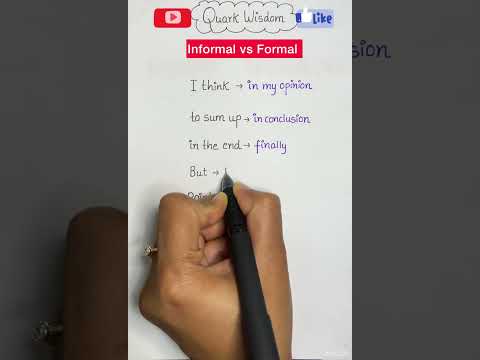 Quark Wisdom
Like
Informal vs Formal
I think → in my opinion
to sum up → in conclusion
in the end → finally
But →